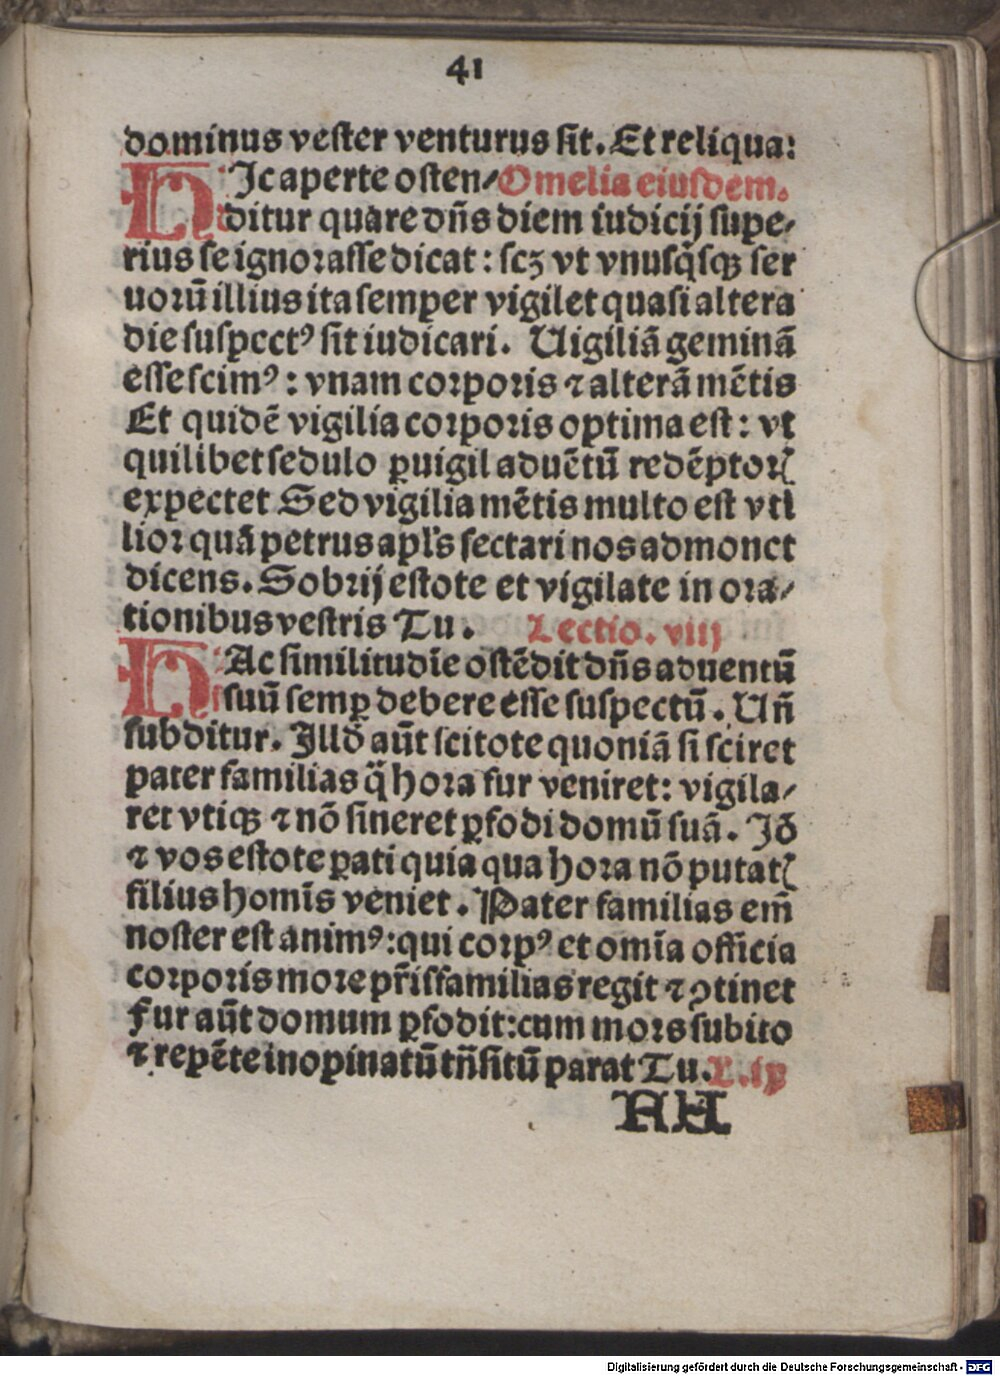 41
dominus vester venturus sit. Et reliqua:
HIc aperte osten/ Omelia eiusdem.
ditur quare dn̄s diem iudicij supe/
rius se ignorasse dicat: scꝫ vt vnusq̇sqꝫ ser
uorū illius ita semper vigilet quasi altera
die suspectꝰ sit iudicari. Uigiliā geminā
esse scimꝰ: vnam corporis ⁊ alterā mētis
Et quidē vigilia corporis optima est: vt
quilibet sedulo ꝑuigil aduētū redēptorꝭ
expectet Sed vigilia mētis multo est vti
lior quā petrus apl's sectari nos admonet
dicens. Sobrij estote et vigilate in ora/
tionibus vestris Tu. Lectio. viij
HAc similitudīe ostēdit dn̄s aduentū
suū semꝑ debere esse suspectū. Un̄
subditur. Illd̄ aūt scitote quoniā si sciret
pater familias q̄ hora fur veniret: vigila/
ret vtiqꝫ ⁊ nō sineret ꝑfodi domū suā. Id̄
⁊ vos estote ꝑati quia qua hora nō putatꝭ
filius homīs veniet. Pater familias em̄
noster est animꝰ: qui corpꝰ et omīa officia
corporis more pr̄isfamilias regit ⁊ ꝯtinet
Fur aūt domum ꝑfodit: cum mors subito
⁊ repēte inopinatū trn̄sitū parat Tu. L. ix
A H
Digitalisierung gefördert durch die Deutsche Forschungsgemeinschaft - DFG